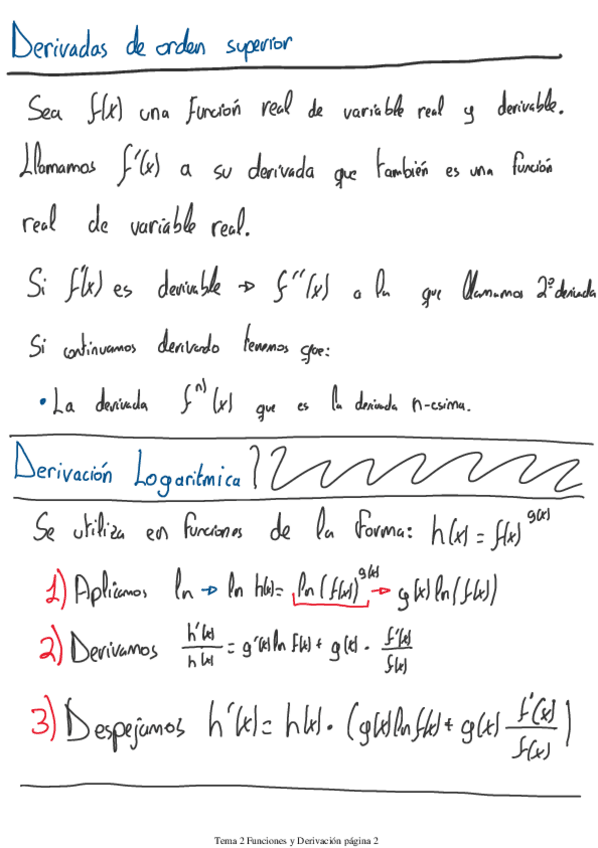 Derivadas de orden superior
Sea f(x) una función real de variable real y derivable.
Llamamos f'(x) a su derivada que también es una función
real de variable real.
Si f'(x) es derivable → f''(x) a la que llamamos 2ª derivada
Si continuamos derivando tenemos que:
• La derivada f^{n)}(x) que es la derivada n-esima.
Derivación Logaritmica
Se utiliza en funciones de la forma: h(x) = f(x)^{g(x)}
1) Aplicamos ln → ln h(x) = ln(f(x))^{g(x)} → g(x) ln(f(x))
2) Derivamos h'(x)/h(x) = g'(x) ln f(x) + g(x) · f'(x)/f(x)
3) Despejamos h'(x) = h(x) · (g(x) ln f(x) + g(x) f'(x)/f(x))
Tema 2 Funciones y Derivación página 2